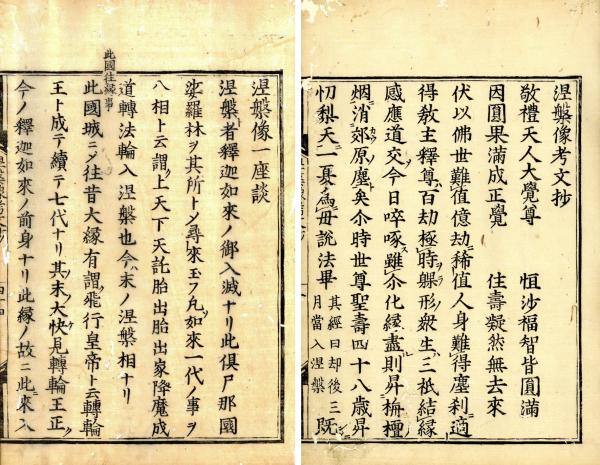 涅槃像考文抄
敬禮天人大覺尊　恒沙福智皆圓滿
因圓果滿成正覺　住壽凝然無去來
伏以佛世難值億劫ニ稀值人身難得塵剎ニ適
得教主釋尊百劫極時躶形ヲ衆生ニ三祇結緣
感應道交今日啐啄雖介化緣盡則昇栴檀
烟ニ消郊原ノ塵矣介時世尊聖壽四十八歲昇
忉梨天一夏為母說法畢
其經曰却後三
月當入涅槃
既
涅槃像一座談
涅槃者釋迦如來ノ御入滅ナリ此俱尸那國
娑羅林ヲ其所トシ尋來玉フ凡如來一代ノ事ヲ
八相ト云謂上天下天託胎出胎出家降魔成
道轉法輪入涅槃也今ハ末ノ涅槃相ナリ
此國往緣事
此國城ニメ往昔大緣有謂飛行皇帝ト云轉輪
王ト成テ續テ七代ナリ其末大快見轉輪王正
今ノ釋迦如來ノ前身ナリ此緣ノ故ニ此來入